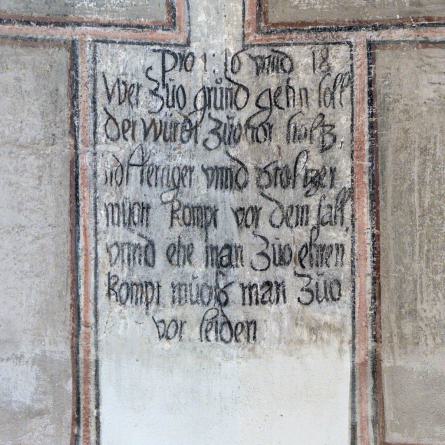 Pro : 16 vnnd 18
Wer Zůo grůnd gehn soll
der würdt Zůuor stoltz,
vnnd stoltzer
můott kompt vor dem fall,
vnnd ehe man Zůo ehren
kompt můoß man Zůo
vor leiden